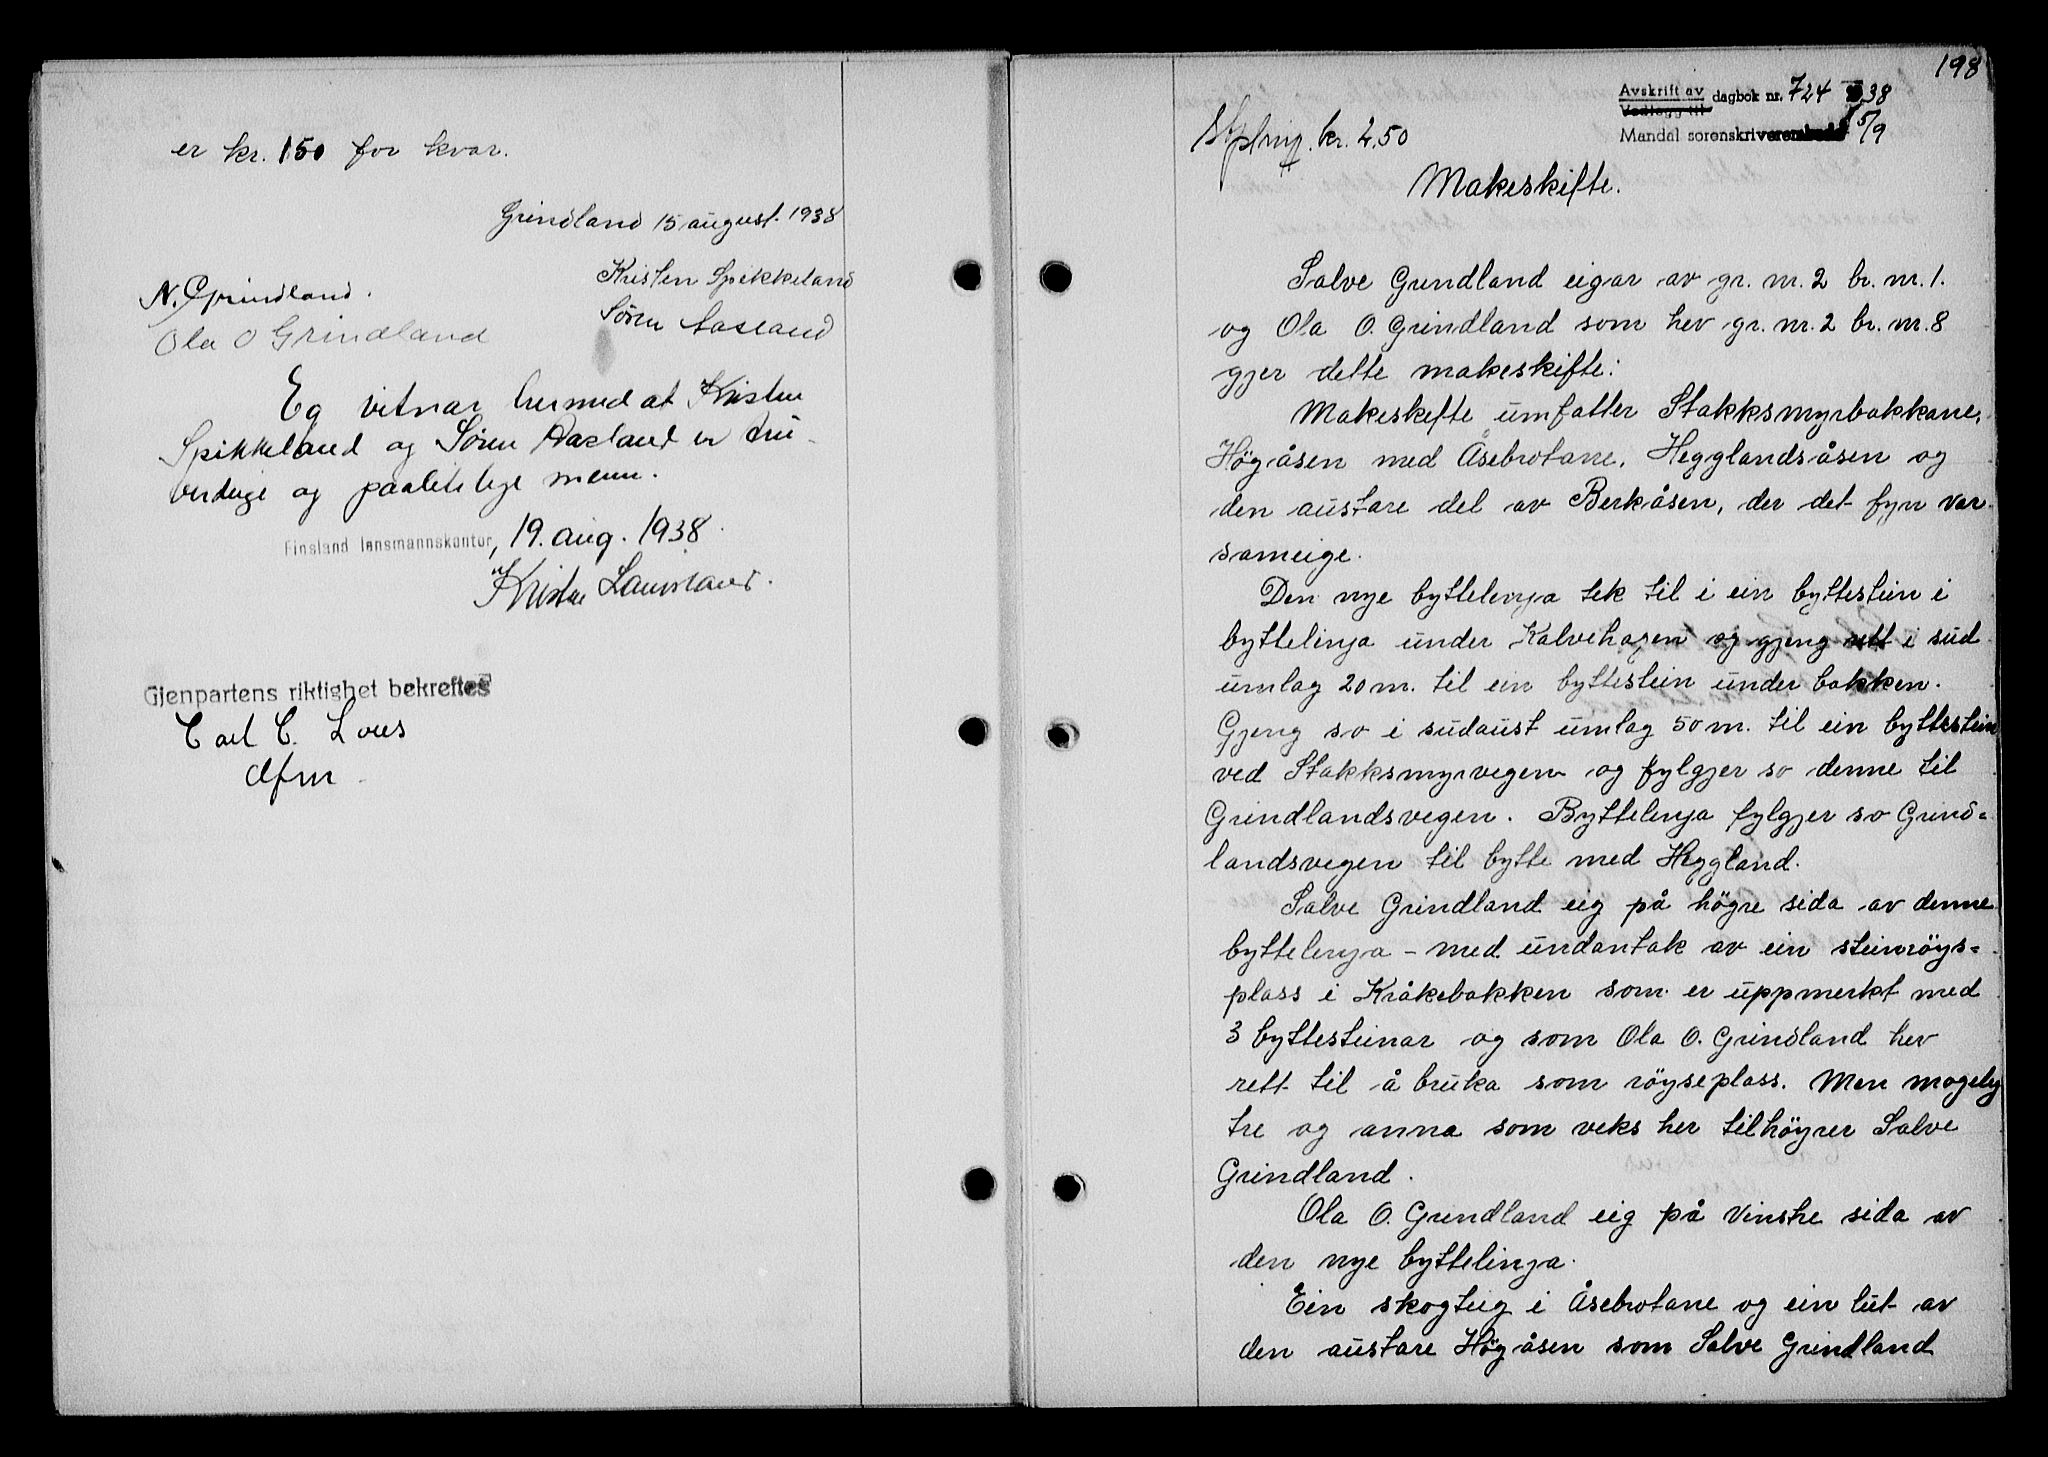 er kr. 150 for kvar.
Grindland 15 august. 1938
Kristen Spikkeland
N. Grindland.
Søren Aasland
Ola O Grindland
Eg vitnar hermed at Kristen
Spikkeland og Søren Aasland er tru-
verdige og paalitelige menn.
Finsland lensmannskontor, 19. aug. 1938.
Kristen
Gjenpartens riktighet bekreftes
Carl C. Lous
dfm
198
Avskrift av
Vedlegg til
dagbok nr. 724 38
Mandal sorenskriverembede 5/9
Stplmrg. kr. 2,50
Makeskifte.
Salve Grindland eigar av gr. nr. 2 br. nr. 1.
og Ola O. Grindland som hev gr. nr. 2 br. nr. 8
gjer dette makeskifte:
Makeskifte umfatter Stakksmyrbakkane,
Högåsen med Åsebrotane, Hegglandsåsen og
den austare del av Berkåsen, der det fyr var
sameige.
Den nye byttelinja tek til i ein byttestein i
byttelinja under Kalvehagen og gjeng rett i sud
umlag 20 m. til ein byttestein under bakken.
Gjeng so i sudaust umlag 50 m. til ein byttestein
ved Stakksmyrvegen og fylgjer so denne til
Grindlandsvegen. Byttelinja fylgjer so Grind=
landsvegen til bytte med Heggland.
Salve Grindland eig på högre sida av denne
byttelinja - med undantak av ein steinröys=
plass i Kråkebakken som er uppmerkt med
3 byttesteinar og som Ola O. Grindland hev
rett til å bruka som röyseplass. Men mogeleg
tre og anna som veks her tilhöyrer Salve
Grindland.
Ola O. Grindland eig på vinstre sida av
den nye byttelinja.
Ein skogteig i Åsebrotane og ein lut av
den austare Högåsen som Salve Grindland